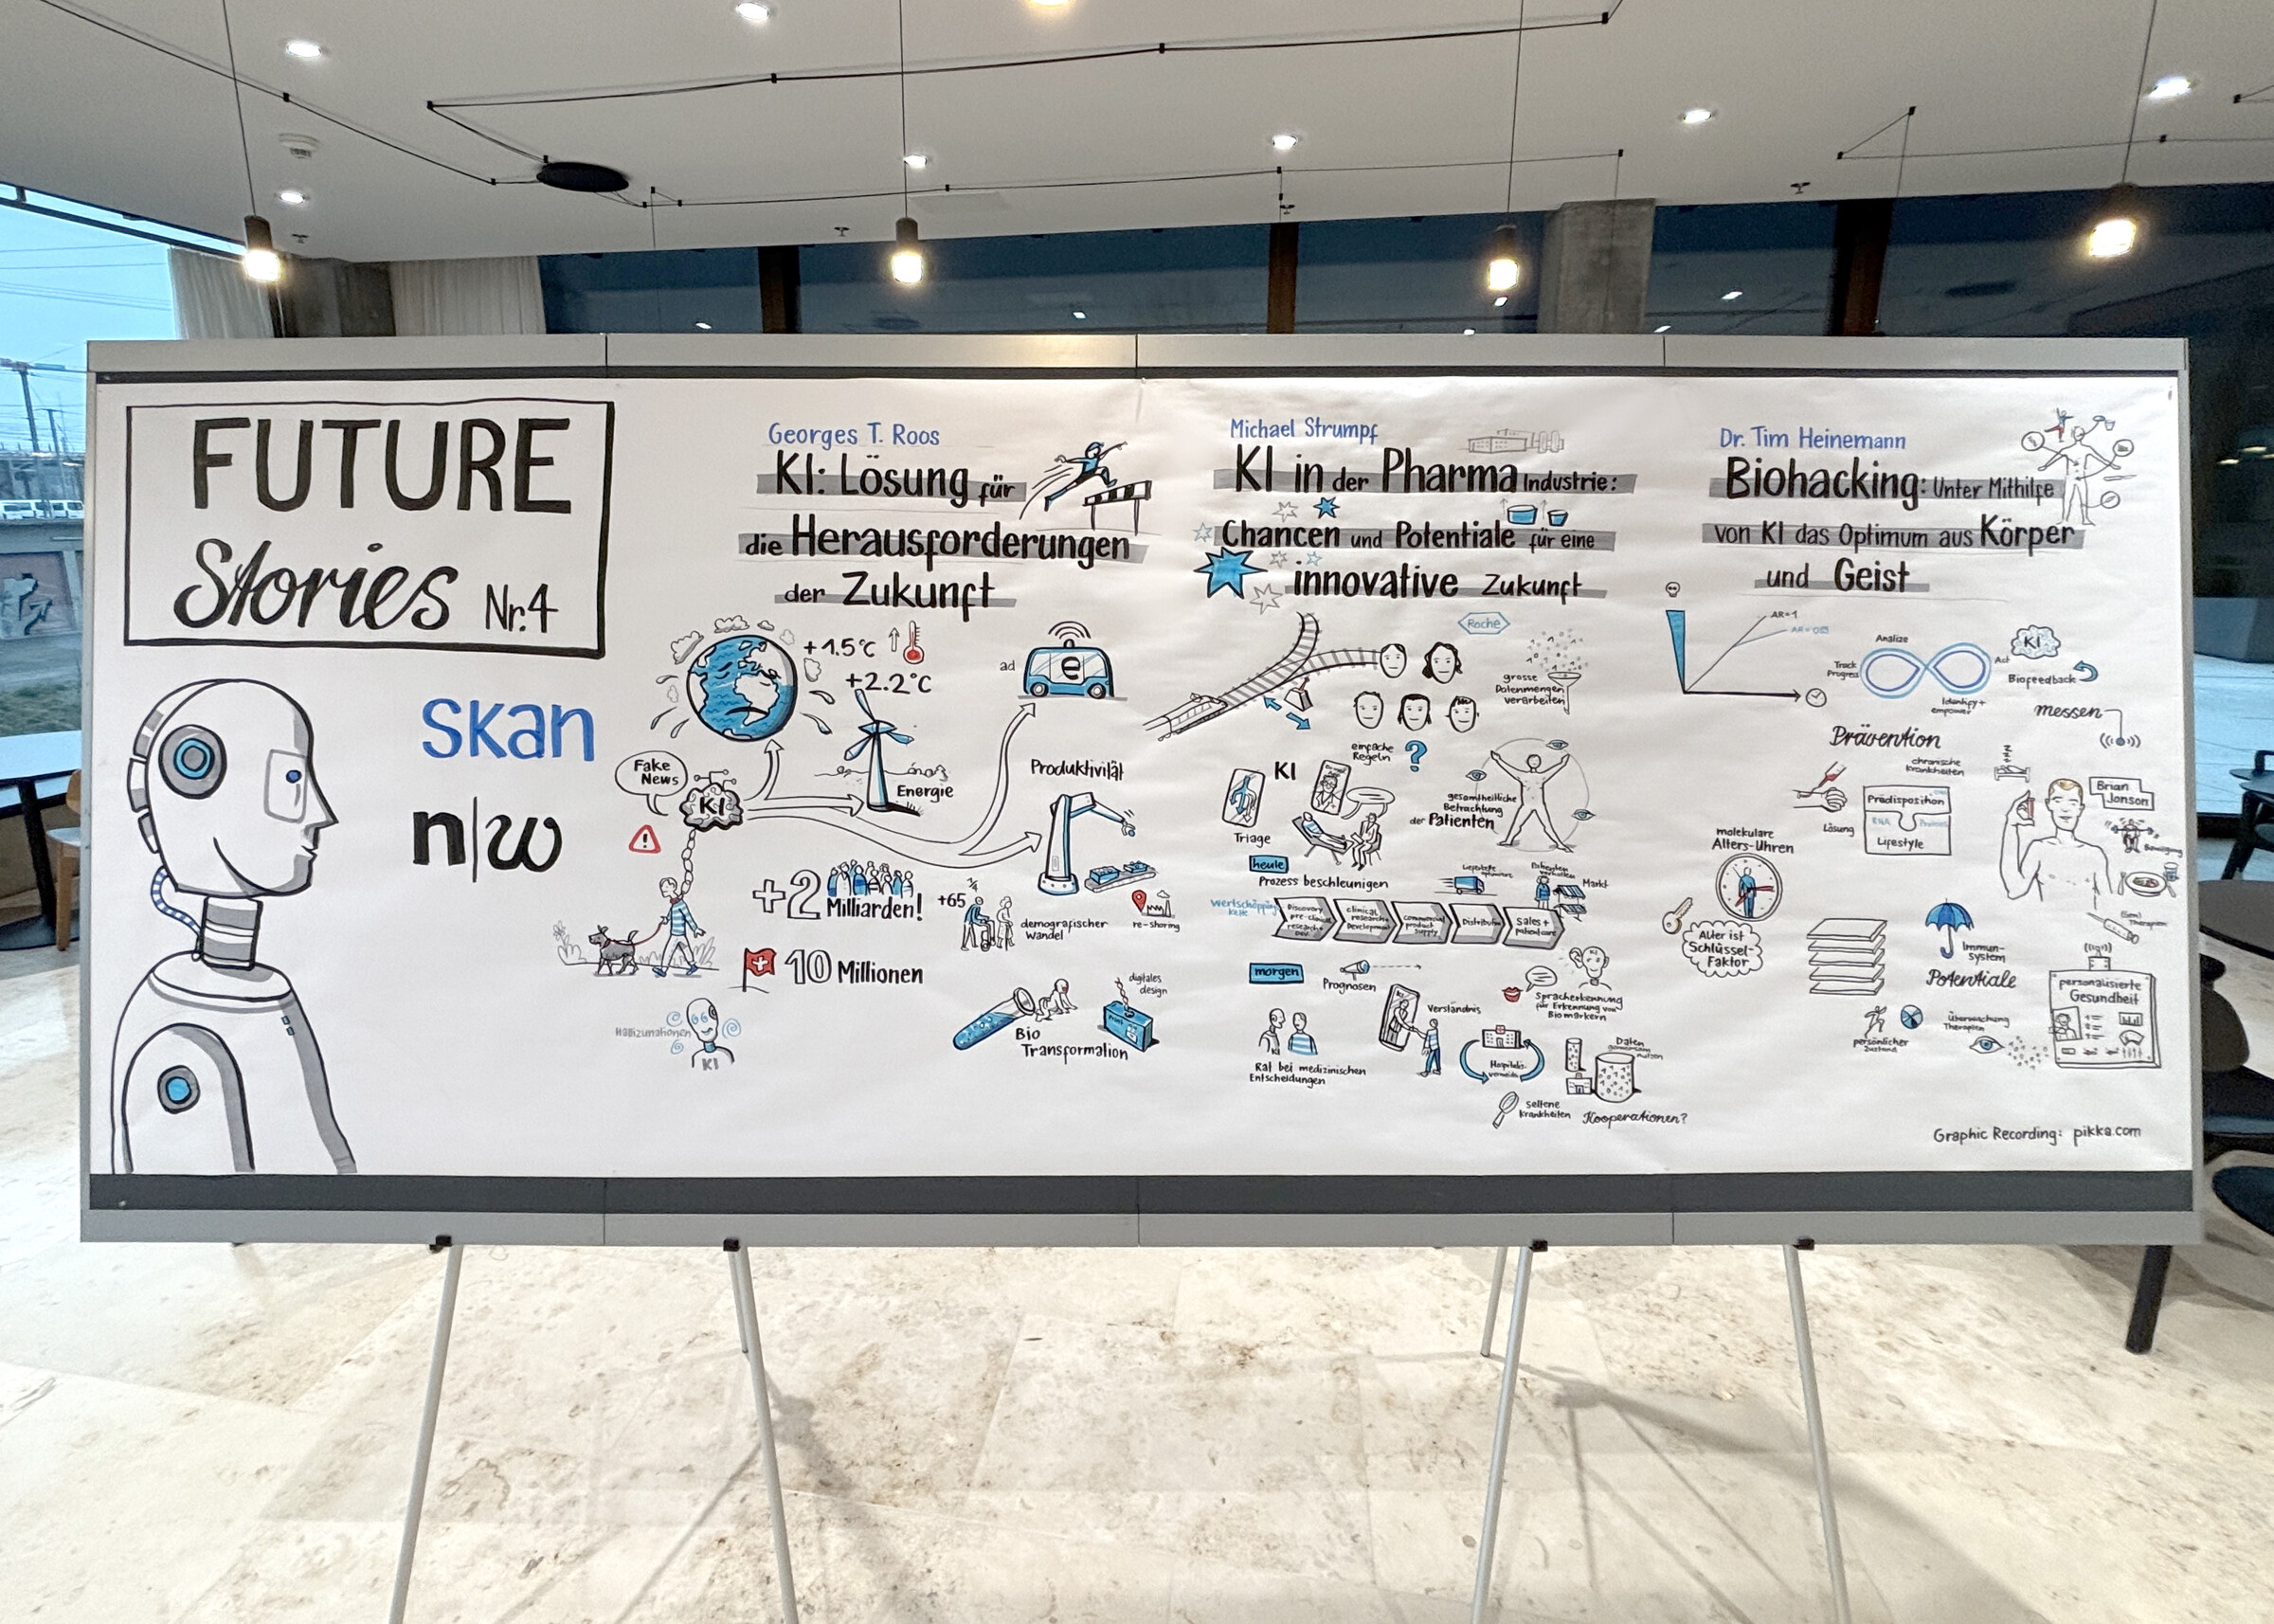 FUTURE
Stories Nr.4
skan
n|w
Georges T. Roos
KI: Lösung für
die Herausforderungen
der Zukunft
+1.5°C
+2.2°C
ad
e
Fake
News
KI
Energie
Produktivität
+2
Milliarden!
+65
1/4
demografischer
Wandel
re-shoring
10 Millionen
Halluzinationen
KI
Bio
Transformation
digitales
design
Michael Strumpf
KI in der Pharma Industrie:
Chancen und Potentiale für eine
innovative Zukunft
Roche
grosse
Datenmengen
verarbeiten
einfache
Regeln
?
KI
Triage
gesamtheitliche
Betrachtung
der Patienten
heute
Prozess beschleunigen
Markt
Wertschöpfungs
kette
Discovery
pre-clinical
research+
Dev.
clinical
research+
Development
commercial
product
supply
Distribution
Sales+
patient care
morgen
Prognosen
Verständnis
Spracherkennung
für Erkennung von
Biomarkern
KI
Rat bei medizinischen
Entscheidungen
Daten
gemeinsam
nutzen
seltene
Krankheiten
Kooperationen?
Dr. Tim Heinemann
Biohacking: Unter Mithilfe
von KI das Optimum aus Körper
und Geist
AR=1
Analize
Track
Progress
Act
Identify+
empower
KI
Biofeedback
messen
Prävention
chronische
Krankheiten
Lösung
Prädisposition
RNA
Proteine
Lifestyle
Brian
Jonson
Bewegung
molekulare
Alters-Uhren
Alter ist
Schlüssel-
Faktor
Immun-
system
Potentiale
persönlicher
Zustand
Überwachung
Therapien
personalisierte
Gesundheit
Graphic Recording: pikka.com